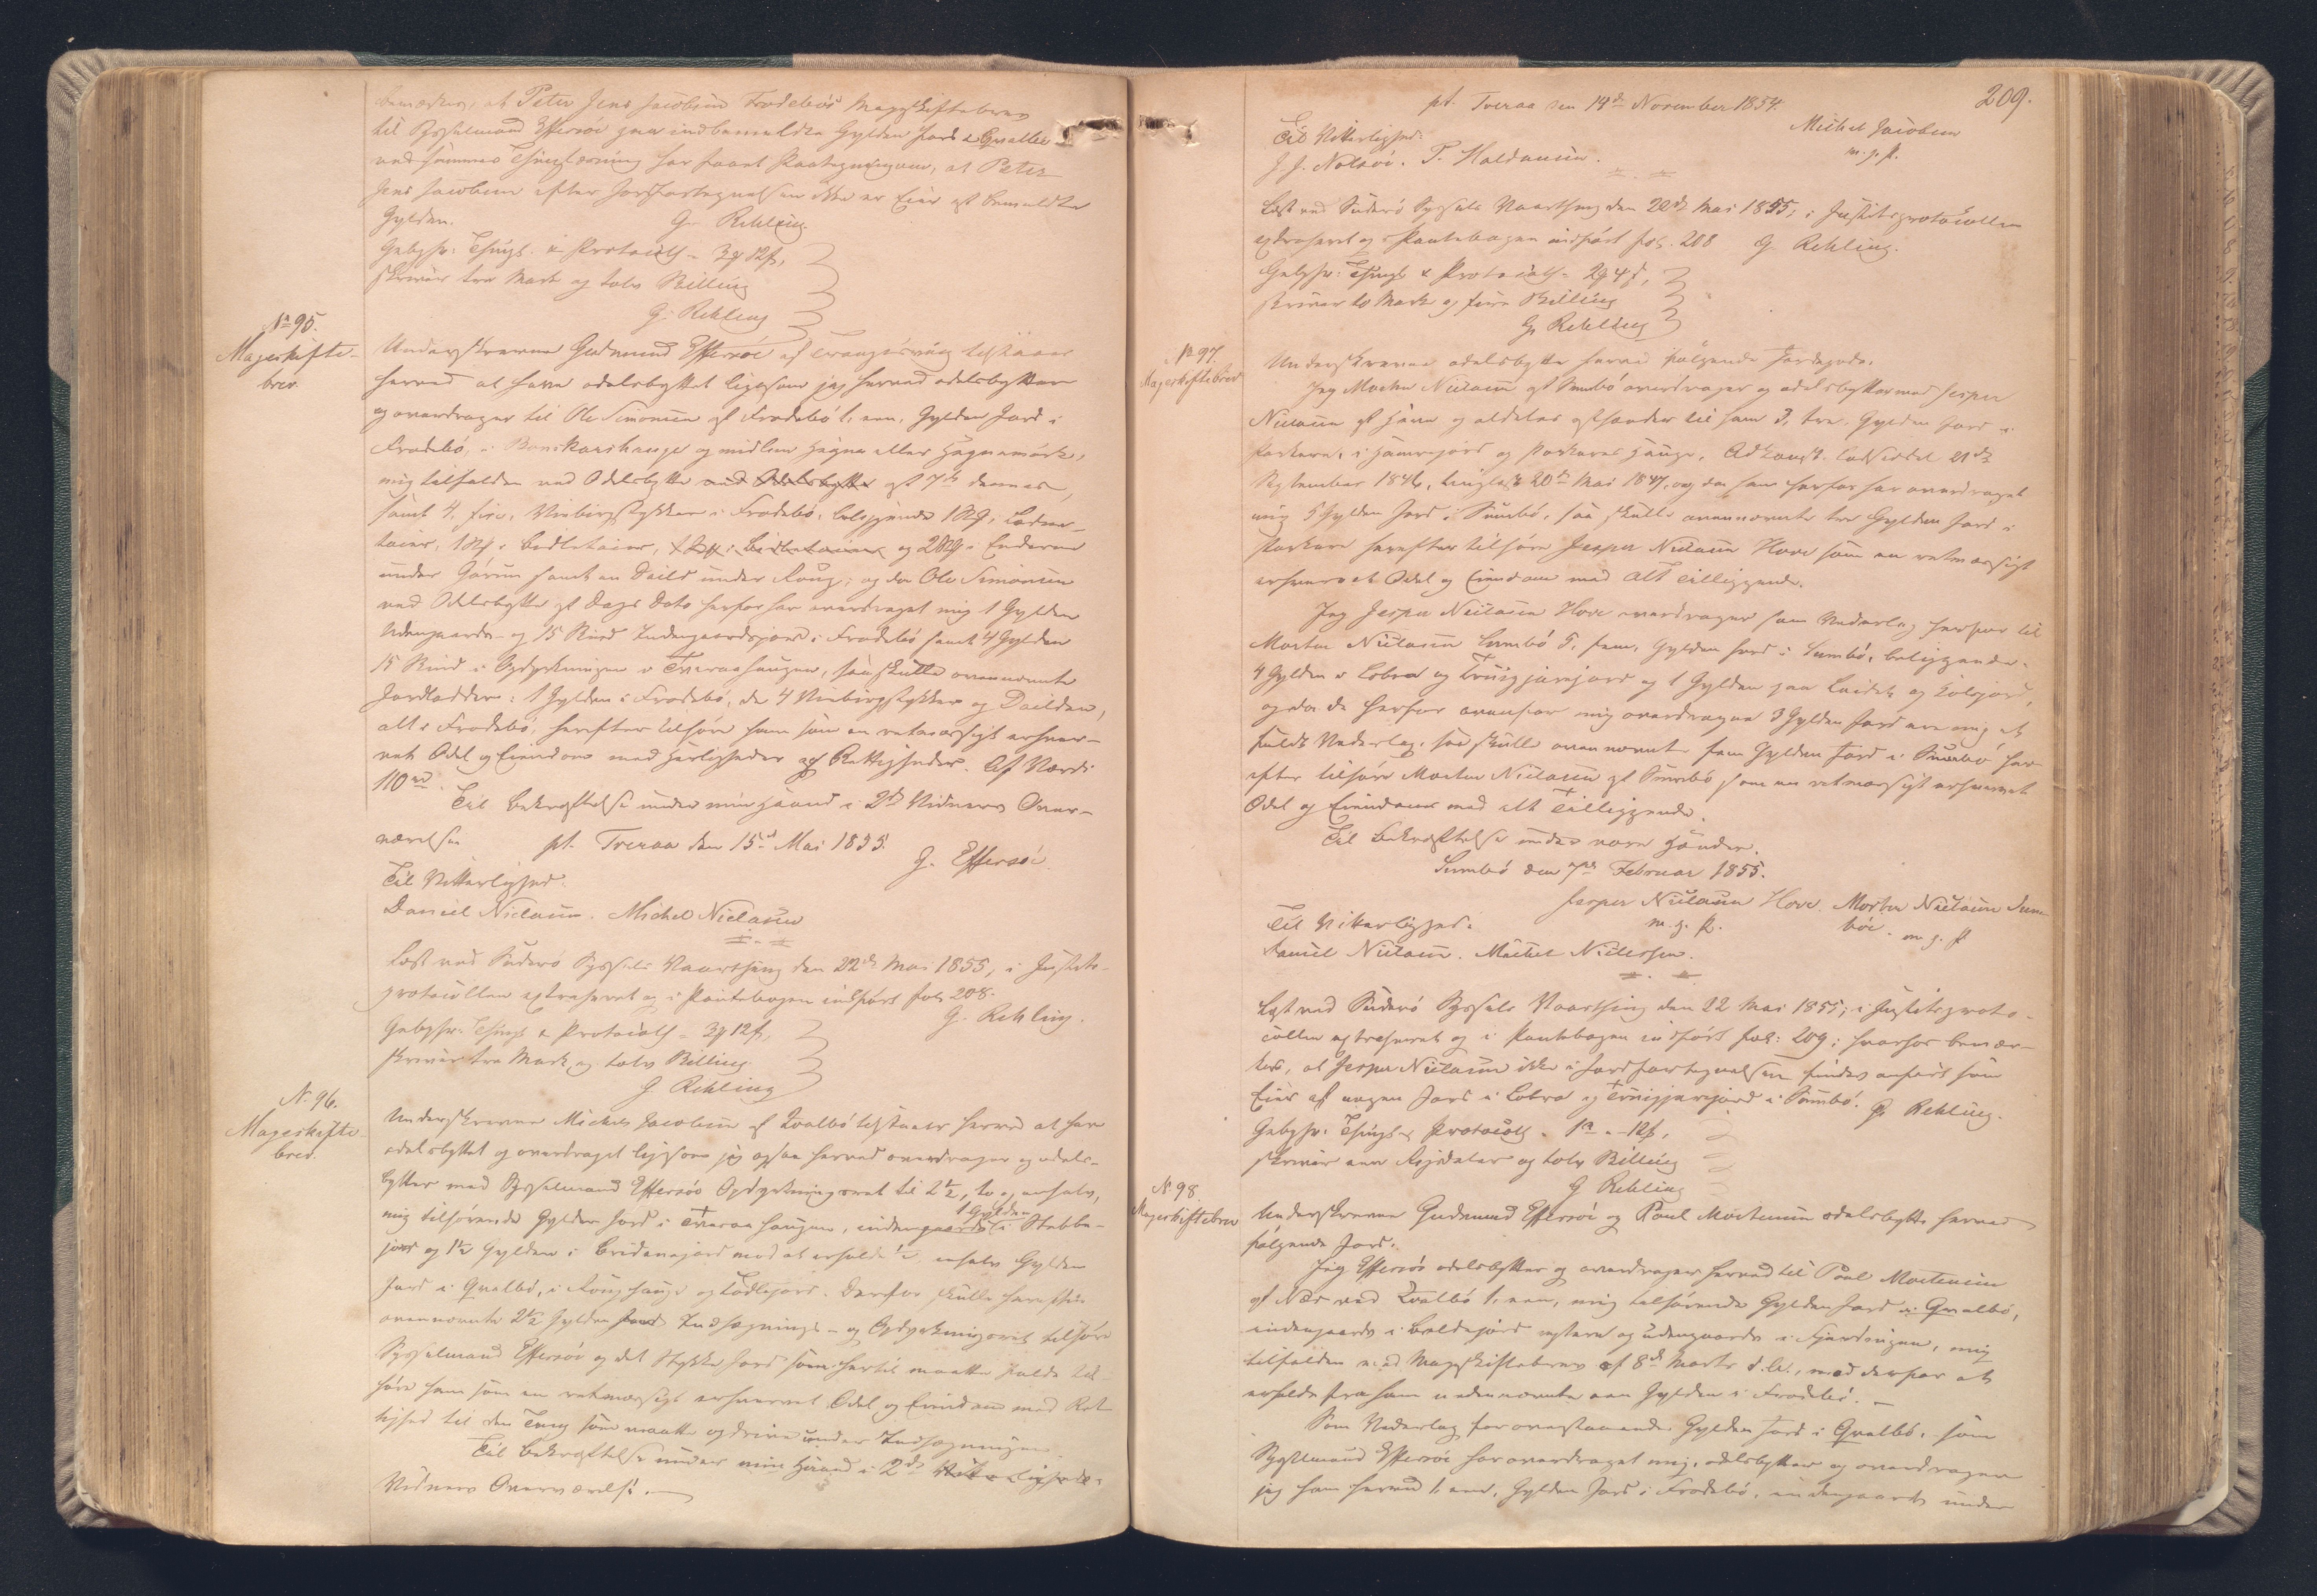 bemærkes, at Peter Jens Jacobsen Frodebøes Mageskiftebrev
til Sysselmand Effersøe paa indbemeldte Gylden Jord i Qvalbø
ved sammes Thinglæsning har faaet Paategning om, at Peter
Jens Jacobsen efter Jordfortegnelsen ikke er Eier af bemeldte
Gylden. G. Rehling.
Gebyhr: Thingl. & Protocoll - 3 12 ſ,
skriver tre Mark og tolv Skilling
G. Rehling
No 95.
Mageskifte-
brev.
Underskrevne Gudmund Effersöe af Trangisvaag tilstaaer
herved at have odelsbyttet ligesom jeg herved odelsbytter
og overdrager til Ole Simonsen af Frodebö 1, een, Gylden Jord i
Frodebö, i Bonskarshauge og midlem Hagna eller Hagnamörk,
mig tilfalden ved Odelsbytte med Odelsbytte af 7de dennes,
samt 4, fire, Uinbirgstykker i Frodebö, beliggende 1 Stk i Lodne-
toier, 1 Stk i Bedletoier, og 2 Stk i Enderne
under Görum samt en Deild under Roug; og da Ole Simonsen
ved Odelsbytte af Dags Dato herfor har overdraget mig 1 Gylden
Udengaards- og 15 Skind Indengaardsjord i Frodebö samt 4 Gylden
15 Skind i Opdyrkningen i Tveraahaugen, saa skulle ovennævnte
Jordlodder: 1 Gylden i Frodebö, de 4 Uinbirgstykker og Deilden,
alt i Frodebö, herefter tilhöre ham som en retmæssigt erhver-
vet Odel og Eiendom med Herligheder og Rettigheder. Af Værdi
110 rd.
Til Bekræftelse under min Haand i 2de Vidners Over-
værelse pt. Tveraa den 15d Mai 1855.
G. Effersöe
Til Vitterlighed.
Daniel Nielsen. Michel Nielsen
Læst ved Suderö Syssels Vaarthing den 22de Mai 1855, i Justits-
protocollen extraheret og i Pantebogen indfört fol. 208.
G. Rehling.
Gebyhr: Thingl & Protocoll - 3 12 ſ,
skriver tre Mark og tolv Skilling
G Rehling
N. 96.
Mageskifte-
brev.
Underskrevne Michel Jacobsen af Qvalbö tilstaaer herved at have
odelsbyttet og overdraget ligesom jeg ogsaa herved overdrager og odels-
bytter med Sysselmand Effersöe Opdyrkningsret til 2½, to og enhalv,
mig tilhörende Gylden Jord i Tveraa haugen, indengaards 1 Gylden i Stubba-
jord og 1½ Gylden i Breidanajord mod at erholde ½ enhalv Gylden
Jord i Qvalbö, i Roughauge og Lödlejord. Derfor skulle herefter
ovennævnte 2½ Gylden Jords Indhegnings- og Opdyrkningsret tilhöre
Sysselmand Effersöe og det Stykke Jord som hertil maatte falde til-
höre ham som en retmæssigt erhvervet Odel og Eiendom med Ret-
tighed til den Tang som maatte opdrive under Indhegningen
Til Bekræftelse under min Haand i 2de Vitterligheds-
Vidners Overværelse.
209.
pt. Tveraa den 14de November 1854.
Michel Jacobsen
m. p. P.
Til Vitterlighed:
J. J. Nolsöe. P. Haldansen.
Læst ved Suderö Syssels Vaarthing den 22de Mai 1855, i Justitsprotocollen
extraheret og i Pantebogen indfört fol. 208 G. Rehling.
Gebyhr: Thingl & Protocoll - 2 4 ſ,
skriver to Mark og fire Skilling
G. Rehling
No 97.
Mageskiftebrev
Underskrevne odelsbytte herved fölgende Jordegods.
Jeg Morten Nielsen af Sumbö overdrager og odelsbytter med Jesper
Nielsen af Hove og aldeles afhænder til ham 3, tre, Gylden Jord i
Porkere, i Hamrejord og Porkeres Hauge. Adkomst: Lodseddel 21de
September 1846, tinglæst 20de Mai 1847, og da han herfor har overdraget
mig 5 Gylden Jord i Sumbö, saa skulle ovennævnte tre Gylden Jord i
Porkere herefter tilhöre Jesper Nielsen Hove som en retmæssigt
erhvervet Odel og Eiendom med Alt Tilliggende.
Jeg Jesper Nielsen Hove overdrager som Vederlag herfor til
Morten Nielsen Sumbö 5, fem, Gylden Jord i Sumbö, beliggende:
4 Gylden i Lobra og Truigjarejord og 1 Gylden paa Leidet og Kolsjord,
og da de herfor ovenfor mig overdragne 3 Gylden Jord ere mig et
fuldt Vederlag, saa skulle ovennævnte fem Gylden Jord i Sumbö her-
efter tilhöre Morten Nielsen af Sumbö som en retmæssigt erhvervet
Odel og Eiendom med alt Tilliggende.
Til Bekræftelse under vore Hænder.
Sumbö den 7de Februar 1855.
Jesper Nielsen Hove. Morten Nielsen Sum-
m. p. P. böe. m. p. P
Til Vitterlighed:
Daniel Nielsen. Michel Nielsen.
Læst ved Suderö Syssels Vaarthing den 22 Mai 1855; i Justitsproto-
collen extraheret og i Pantebogen indfört fol: 209; hvorhos bemær-
kes, at Jesper Nielsen ikke i Jordfortegnelsen findes anfört som
Eier af nogen Jord i Lobra og Truigjarejord i Sumbö. G. Rehling.
Gebyhr: Thingl & Protocoll. 1 rd - 12 ſ,
skriver een Rigsdaler og tolv Skilling
G Rehling
N. 98.
Mageskiftebrev
Underskrevne Gudmund Effersöe og Poul Mortensen odelsbytte herved
fölgende Jord.
Jeg Effersöe odelsbytter og overdrager herved til Poul Mortensen
af Næs ved Qvalbö 1, een, mig tilhörende Gylden Jord i Qvalbö,
indengaards i Boldejord nytern og udengaards i Fjardingen, mig
tilfalden ved Mageskiftebrev af 8de Marts d. A., mod derfor at
erholde fra ham nedennævnte een Gylden i Frodebö. —
Som Vederlag for ovenstaaende Gylden Jord i Qvalbö, som
Sysselmand Effersöe har overdraget mig, odelsbytter og overdrager
jeg ham herved 1, een, Gylden Jord i Frodebö, indengaards under